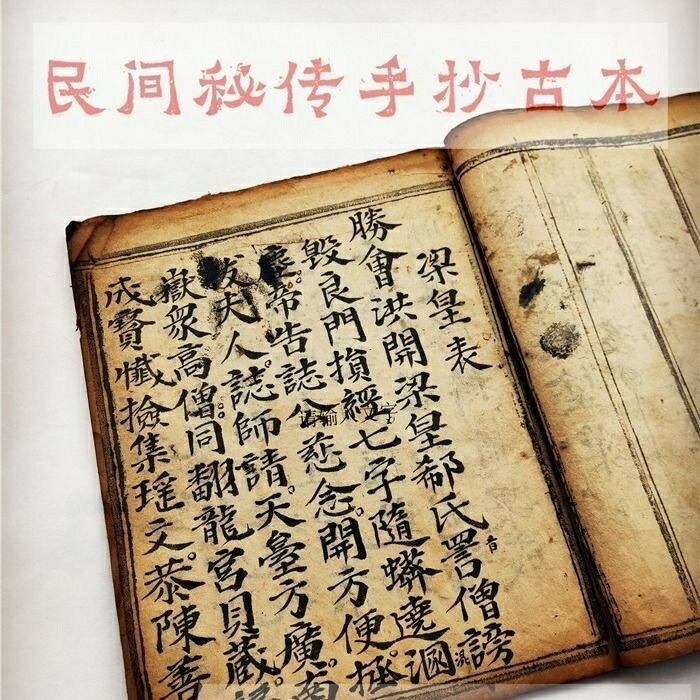 民间秘传手抄古本
梁皇表
勝會洪開梁皇郗氏詈僧謗
毀良門損經七字隨蟒遶涸
帝告誌公慈念。開方便拯
夫人誌師請。天臺方廣南
嶽衆高僧。同翻龍宮貝藏。
成寳懺撿集瑤文。恭陳善